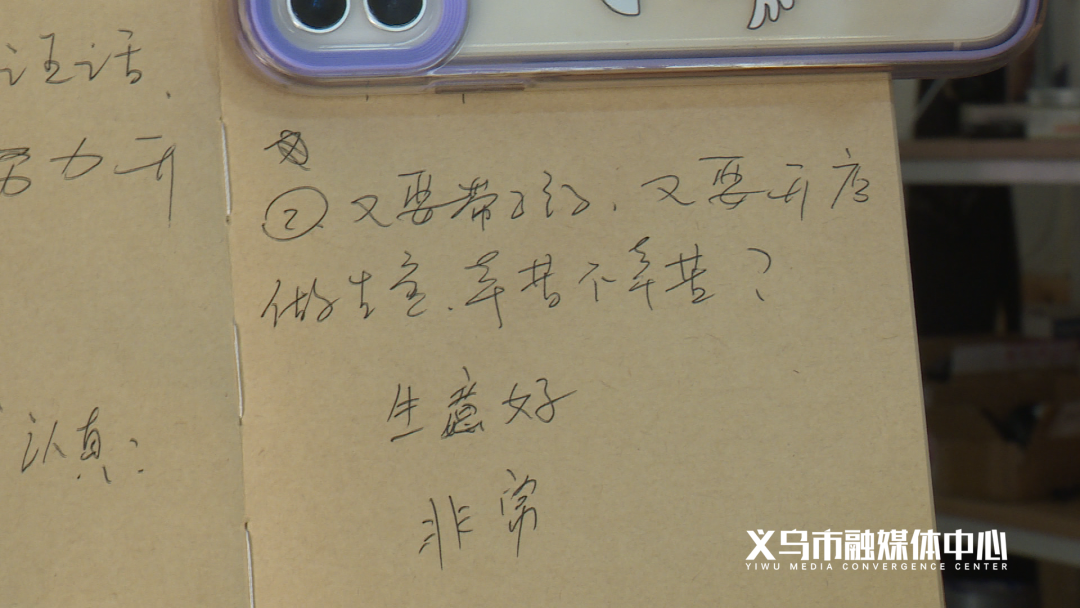 话
力开
认真:
② 又要带孩子, 又要开店
做生意、辛苦不辛苦?
生意好
非常
义乌市融媒体中心
YIWU MEDIA CONVERGENCE CENTER